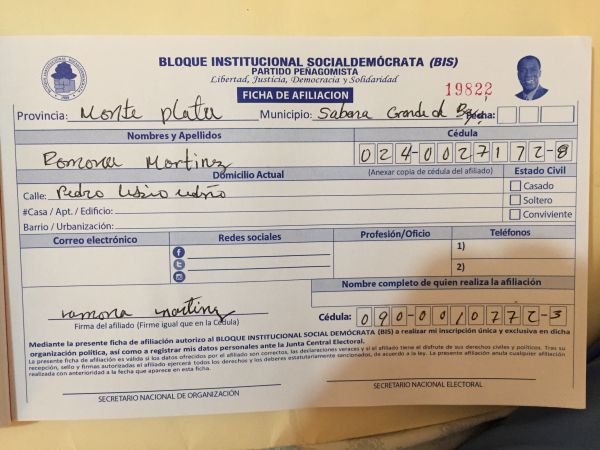 BLOQUE INSTITUCIONAL SOCIALDEMÓCRATA (BIS)
PARTIDO PEÑAGOMISTA
Libertad, Justicia, Democracia y Solidaridad
FICHA DE AFILIACION
19822
Provincia: Monte Plata Municipio: Sabana Grande de Fecha:
Nombres y Apellidos Cédula
Ramona Martinez 024-0027172-8
Domicilio Actual (Anexar copia de cédula del afiliado) Estado Civil
Calle: Pedro
Casado
#Casa / Apt. / Edificio: Soltero
Barrio / Urbanización: Conviviente
Correo electrónico Redes sociales Profesión/Oficio Teléfonos
1)
2)
Nombre completo de quien realiza la afiliación
ramona martinez
Firma del afiliado (Firme igual que en la Cédula) Cédula: 090-0010772-3
Mediante la presente ficha de afiliación autorizo al BLOQUE INSTITUCIONAL SOCIAL DEMÓCRATA (BIS) a realizar mi inscripción única y exclusiva en dicha
organización política, así como a registrar mis datos personales ante la Junta Central Electoral.
La presente ficha de afiliación es válida si los datos ofrecidos por el afiliado son correctos, las declaraciones veraces y si el afiliado tiene el disfrute de sus derechos civiles y políticos. Tras su
recepción, sello y firmas autorizadas el afiliado ejercerá todos los derechos y los deberes estatutariamente sancionados, de acuerdo a la ley. La presente afiliación anula cualquier afiliación
realizada con anterioridad a la fecha que aparece en esta ficha.
SECRETARIO NACIONAL DE ORGANIZACIÓN SECRETARIO NACIONAL ELECTORAL